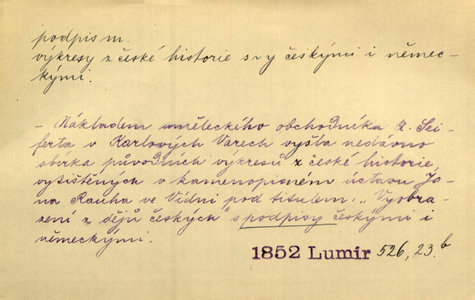 podpis m.
výkresy z české historie s-y českými i němec-
kými.
— Nákladem uměleckého obchodníka K. Sei-
ferta v Karlových Varech vyšla nedávno
sbírka původních výkresů z české historie,
vytištěných v kamenopisném ústavu Jo-
na Rauha ve Vídni pod titulem: „Vyobra-
zení z dějů českých" s podpisy českými i
německými.
1852 Lumír 526, 23.b